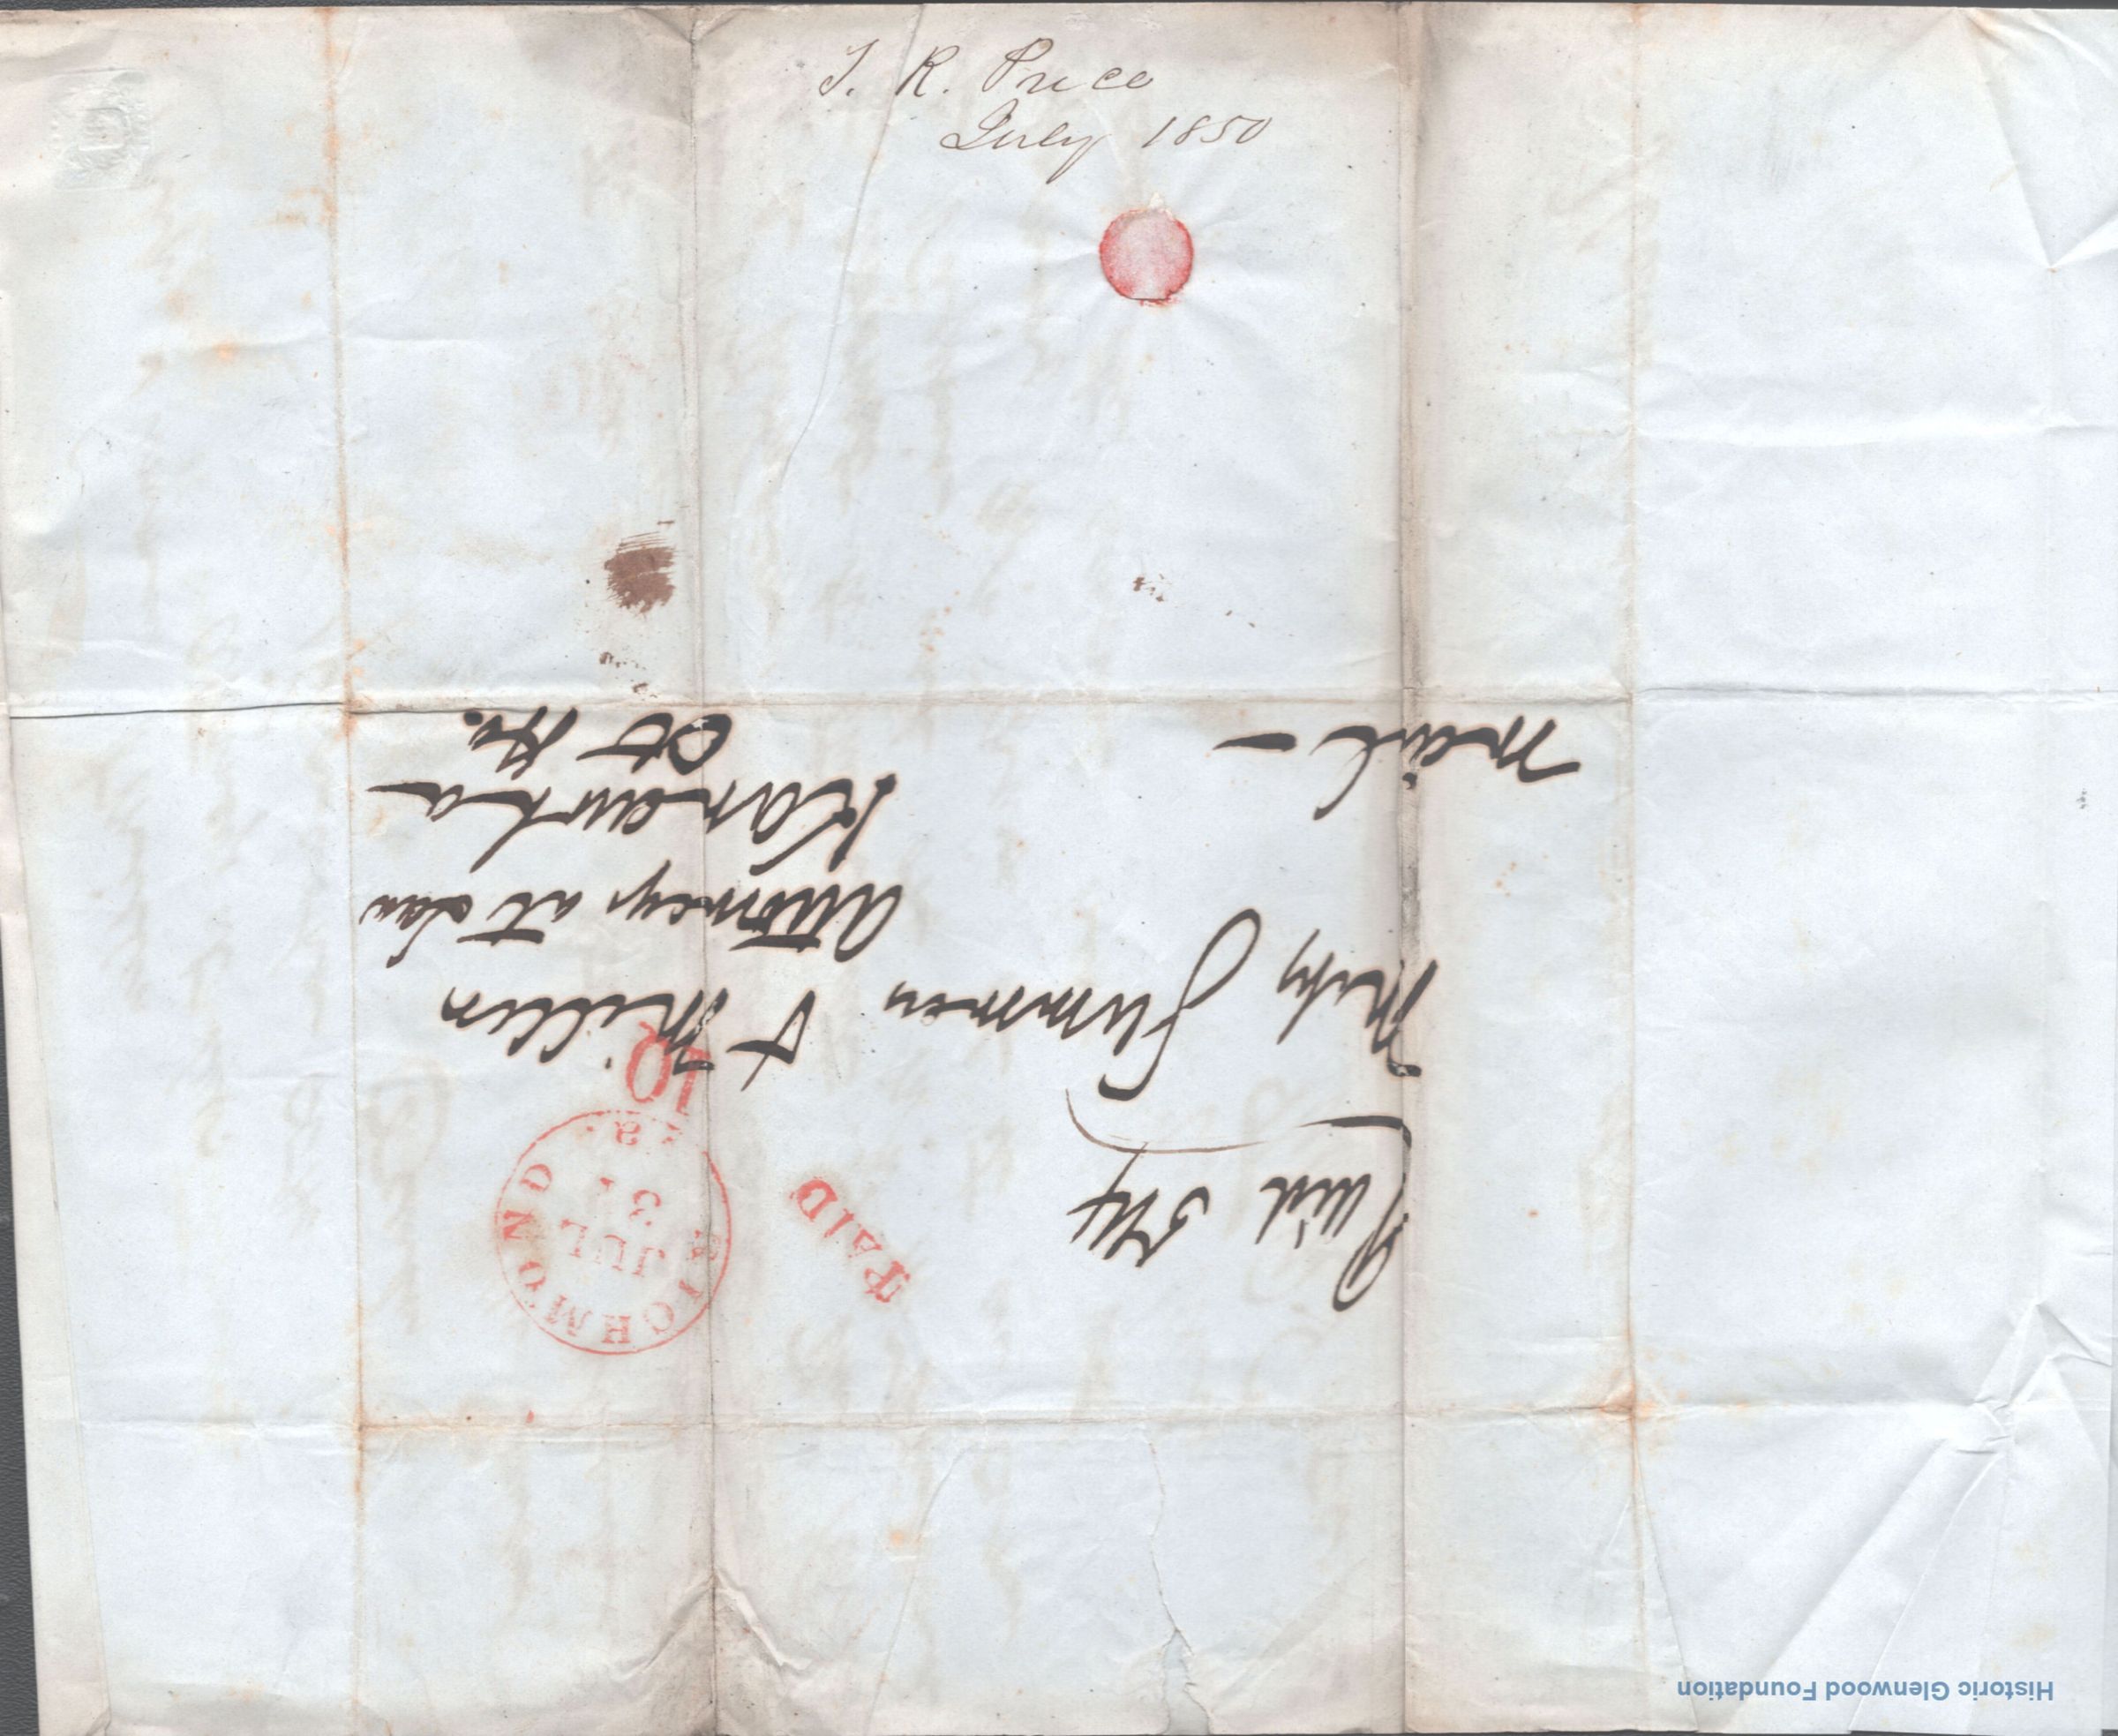 T. R. Price
July 1850
Paid
PAID
RICHMOND Va.
JUL
31
10
Summers & Miller
Attorneys at Law
Kanawha
Ct Ho.
Mail -
Historic Glenwood Foundation